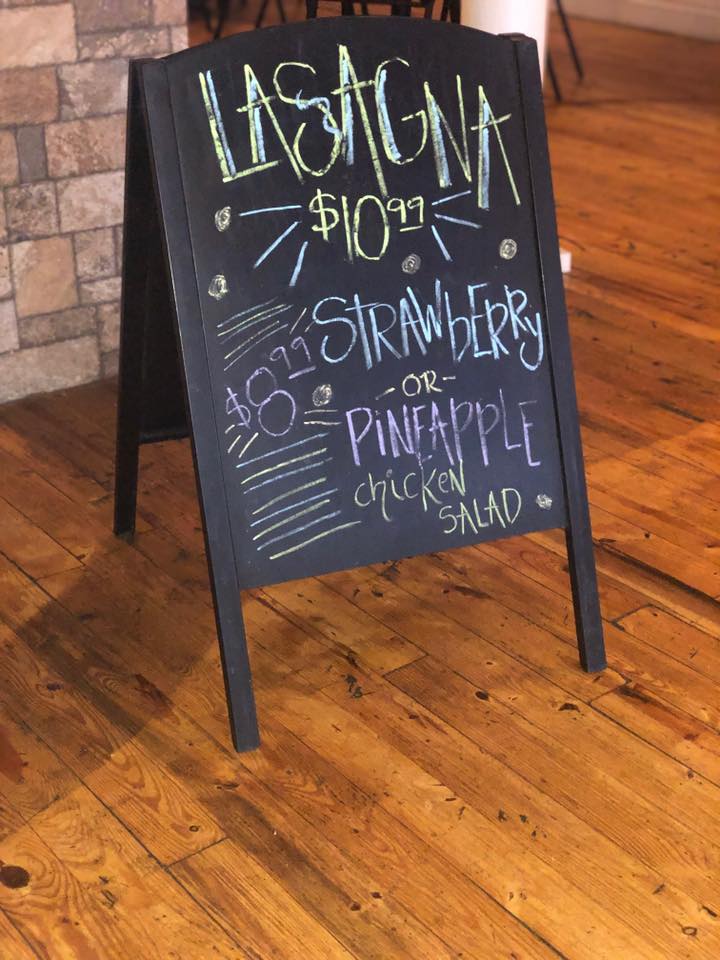 LASAGNA
$10.99
$8.99 STRAWbERRy
-OR-
PINEAPPLE
chicKeN
SALAD